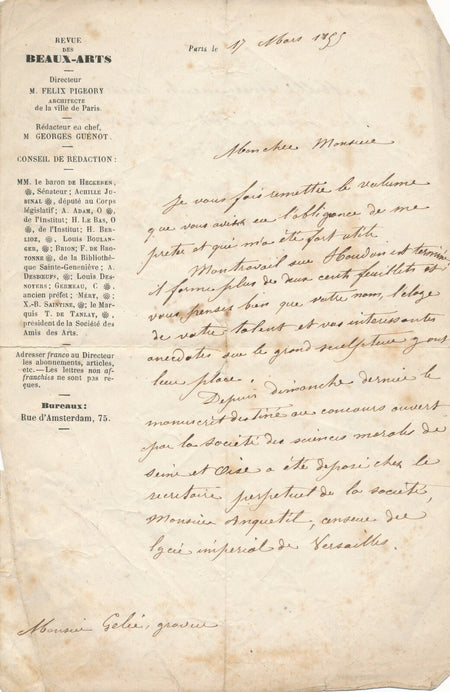 REVUE
DES
BEAUX-ARTS
Directeur
M. FELIX PIGEORY
ARCHITECTE
de la ville de Paris.
Rédacteur en chef,
M. GEORGES GUÉNOT.
CONSEIL DE REDACTION:
MM. le baron DE HECKEREN,
Sénateur; ACHILLE JU-
BINAL, député au Corps
législatif; A. ADAM, O
de l'Institut; H. LE BAS, O
de l'Institut; H. BER-
LIOZ, Louis BOULAN-
GER, BRION; F. DE
de la Bibliothè-
que Sainte-Geneviève; A.
DESBŒUFS, Louis DES-
NOYERS; GERMEAU, C
ancien préfet; MÉRY,
X.-B. SAINTINE, le Mar-
quis T. DE TANLAY,
président de la Société des
Amis des Arts.
Adresser franco au Directeur
les abonnements, articles,
etc.—Les lettres non af-
franchies ne sont pas re-
çues.
Bureaux:
Rue d'Amsterdam, 75.
Paris le 17 Mars 1855
Mon cher Monsieur
Je vous fais remettre le volume
que vous avez eu l'obligance de me
preter et qui m'a été fort utile
Mon travail sur Houdon est terminé
il forme plus de deux cents feuillets et
vous pensez bien que votre nom, l'éloge
de votre talent et vos interessantes
anecdotes sur le grand sculpteur y ont
leur place.
Depuis dimanche dernier le
manuscrit destiné au concours ouvert
par la société des sciences morales de
seine et Oise a été deposé chez le
secretaire perpetuel de la société,
Monsieur Anquetil, censeur du
lycée impérial de Versailles.
Monsieur Gelée, graveur